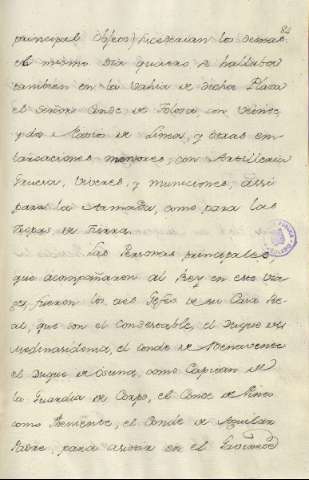 84
principal objeto) hicieran los demas.
el mismo dia quatro se hallaba
tambien en la Vahia de dicha Plaza
el Señor Conde de Tolosa, con veinte
y dos Navios de Linea, y otras em
barcaciones menores, con Artilleria
Gruesa, Viveres, y municiones, assi
para la Armada, como para las
Tropas de Tierra.
Las Personas principales,
que acompañaron al Rey en este Via
ge, fueron los del Gefes de su Casa Re
al, que son el Condestable, el Duque de
Medinasidonia, el Conde de Benavente
el Duque de Osuna, como Capitan de
la Guardia de Corps, el Conde de Pinto
como Theniente, el Conde de Aguilar
Padre, para asistir en el